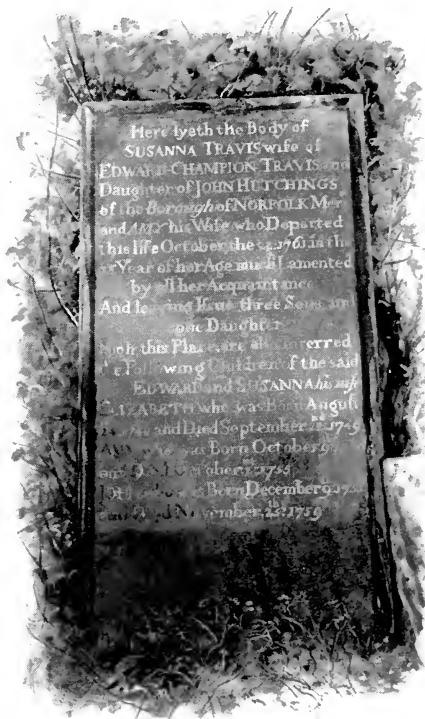 Here lyeth the Body of
SUSANNA TRAVIS wife of
EDWARD CHAMPION TRAVIS and
Daughter of JOHN HUTCHINGS
of the Borough of NORFOLK Mer
and AMY his Wife who Departed
this life October the 1761 in the
Year of her Age much Lamented
by all her Acquaintance
And leaving Issue three Sons and
one Daughter
Nigh this Place are also interred
the Following Children of the said
EDWARD and SUSANNA his wife
ELIZABETH who was Born August
and Died September 1749
was Born October
and Died October 1755
was Born December 9
and Died November 28: 1759